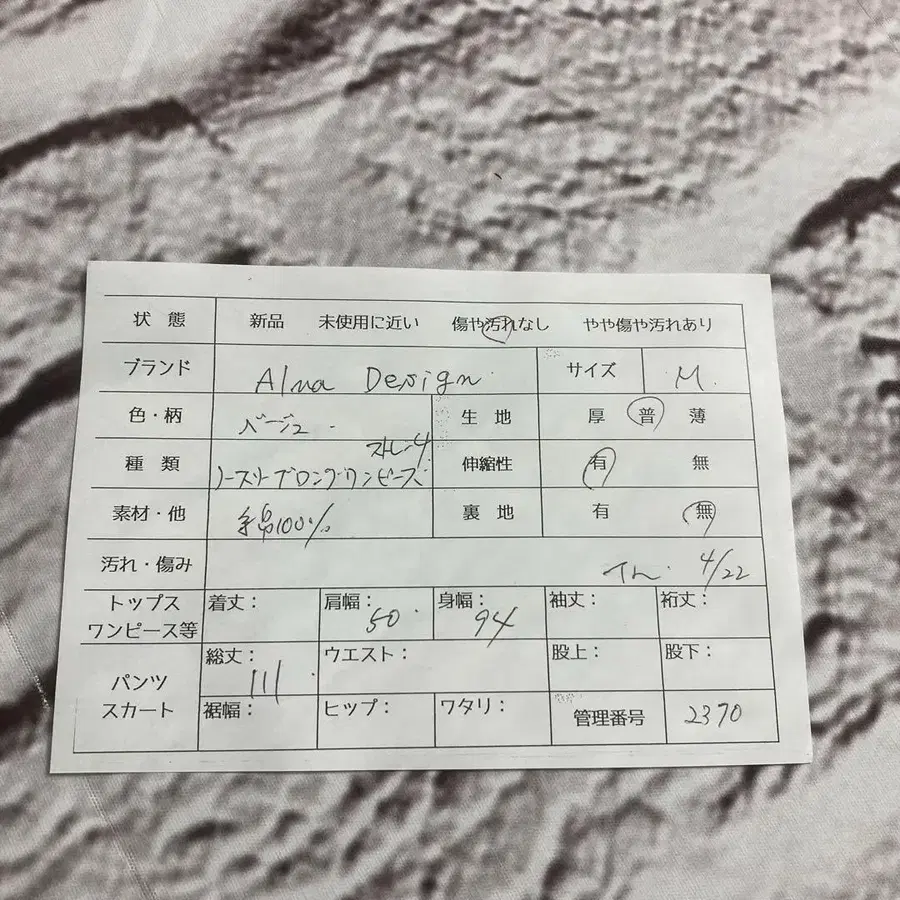 状態 新品 未使用に近い 傷や汚れなし やや傷や汚れあり
ブランド Alna Design サイズ M
色・柄 ベージュ 生地 厚 普 薄
ストレート
種類 ノースリーブロングワンピース 伸縮性 有 無
素材・他 綿100% 裏地 有 無
汚れ・傷み 4/22
トップス
ワンピース等 着丈： 肩幅：50 身幅：94 袖丈： 裄丈：
パンツ
スカート 総丈：111 ウエスト： 股上： 股下：
裾幅： ヒップ： ワタリ： 管理番号 2370